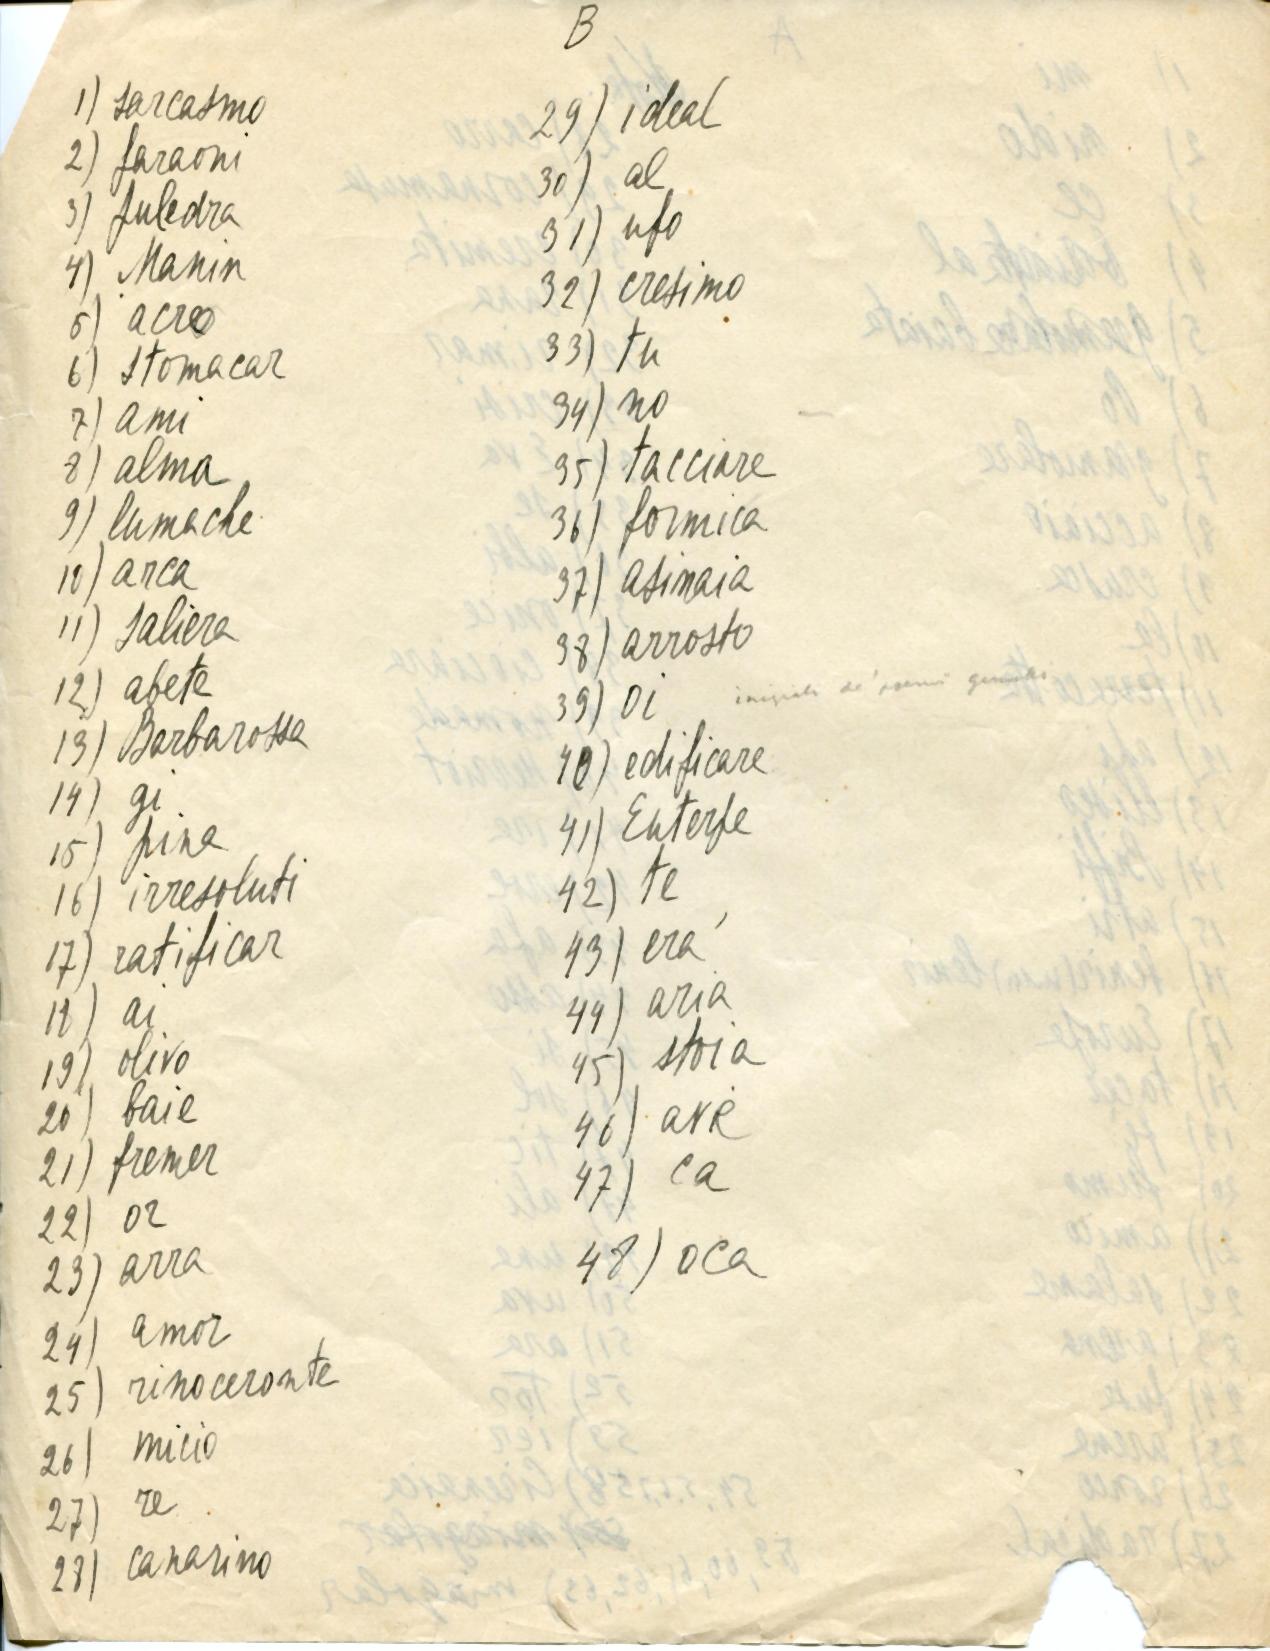 B
1) sarcasmo
2) faraoni
3) puledra
4) Manin
5) acro
6) stomacar
7) ami
8) alma
9) lumache
10) arca
11) saliera
12) abete
13) Barbarossa
14) gi
15) pina
16) irresoluti
17) ratificar
18) ai
19) olivo
20) baie
21) fremer
22) or
23) arra
24) amor
25) rinoceronte
26) micio
27) re
28) canarino
29) ideal
30) al
31) ufo
32) cresimo
33) tu
34) no
35) tacciare
36) formica
37) asinaia
38) arrosto
39) oi
40) edificare
41) Euterpe
42) te
43) era'
44) aria
45) stoia
46) ave
47) ca
48) oca